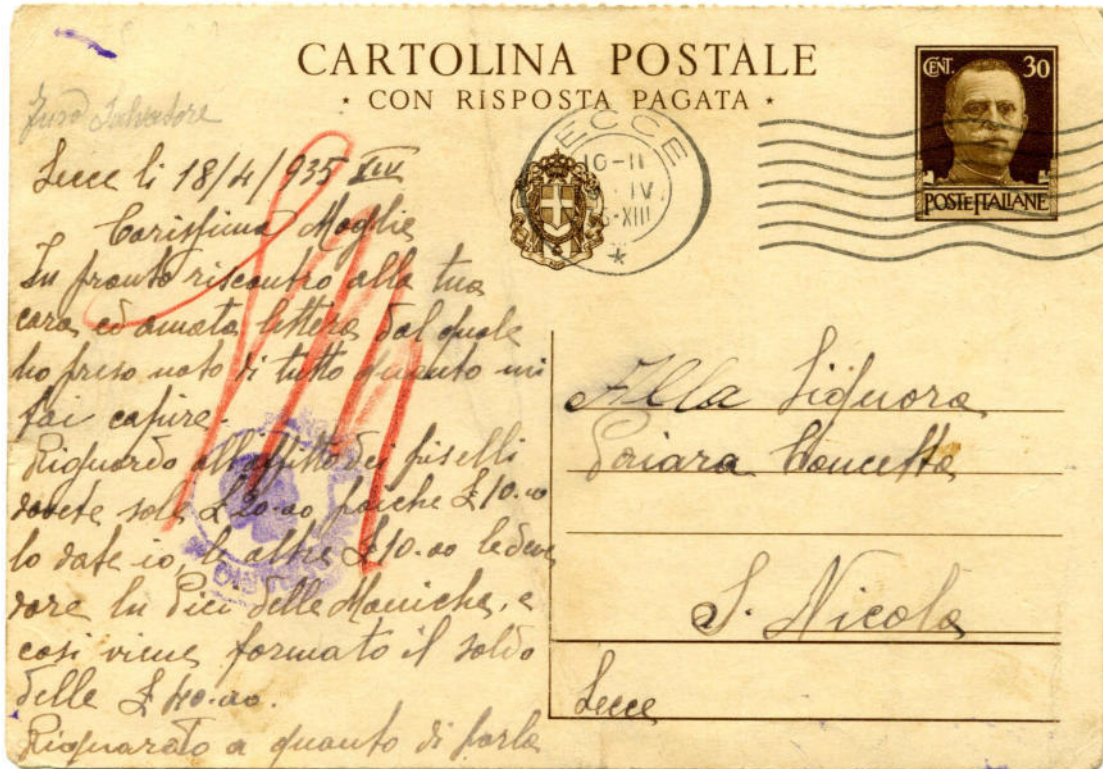 CARTOLINA POSTALE
CON RISPOSTA PAGATA
CENT. 30
POSTE ITALIANE
LECCE
16-11
IV
XIII
Salvatore
Lecce li 18/4/935 XIII
Carissima Moglie
In pronto riscontro alla tua
cara ed amata lettera dal quale
ho preso noto di tutto quanto mi
fai capire.
Riguardo all'affitto dei piselli
dovete solo £ 20.00 poiche £ 10.00
lo date io, le altre £ 10.00 le deve
dare lu Pici delle Maniche, e
cosi viene formato il soldo
delle £ 40.00.
Riguardo a quanto di parla
Alla Signora
Concetta
S. Nicola
Lecce